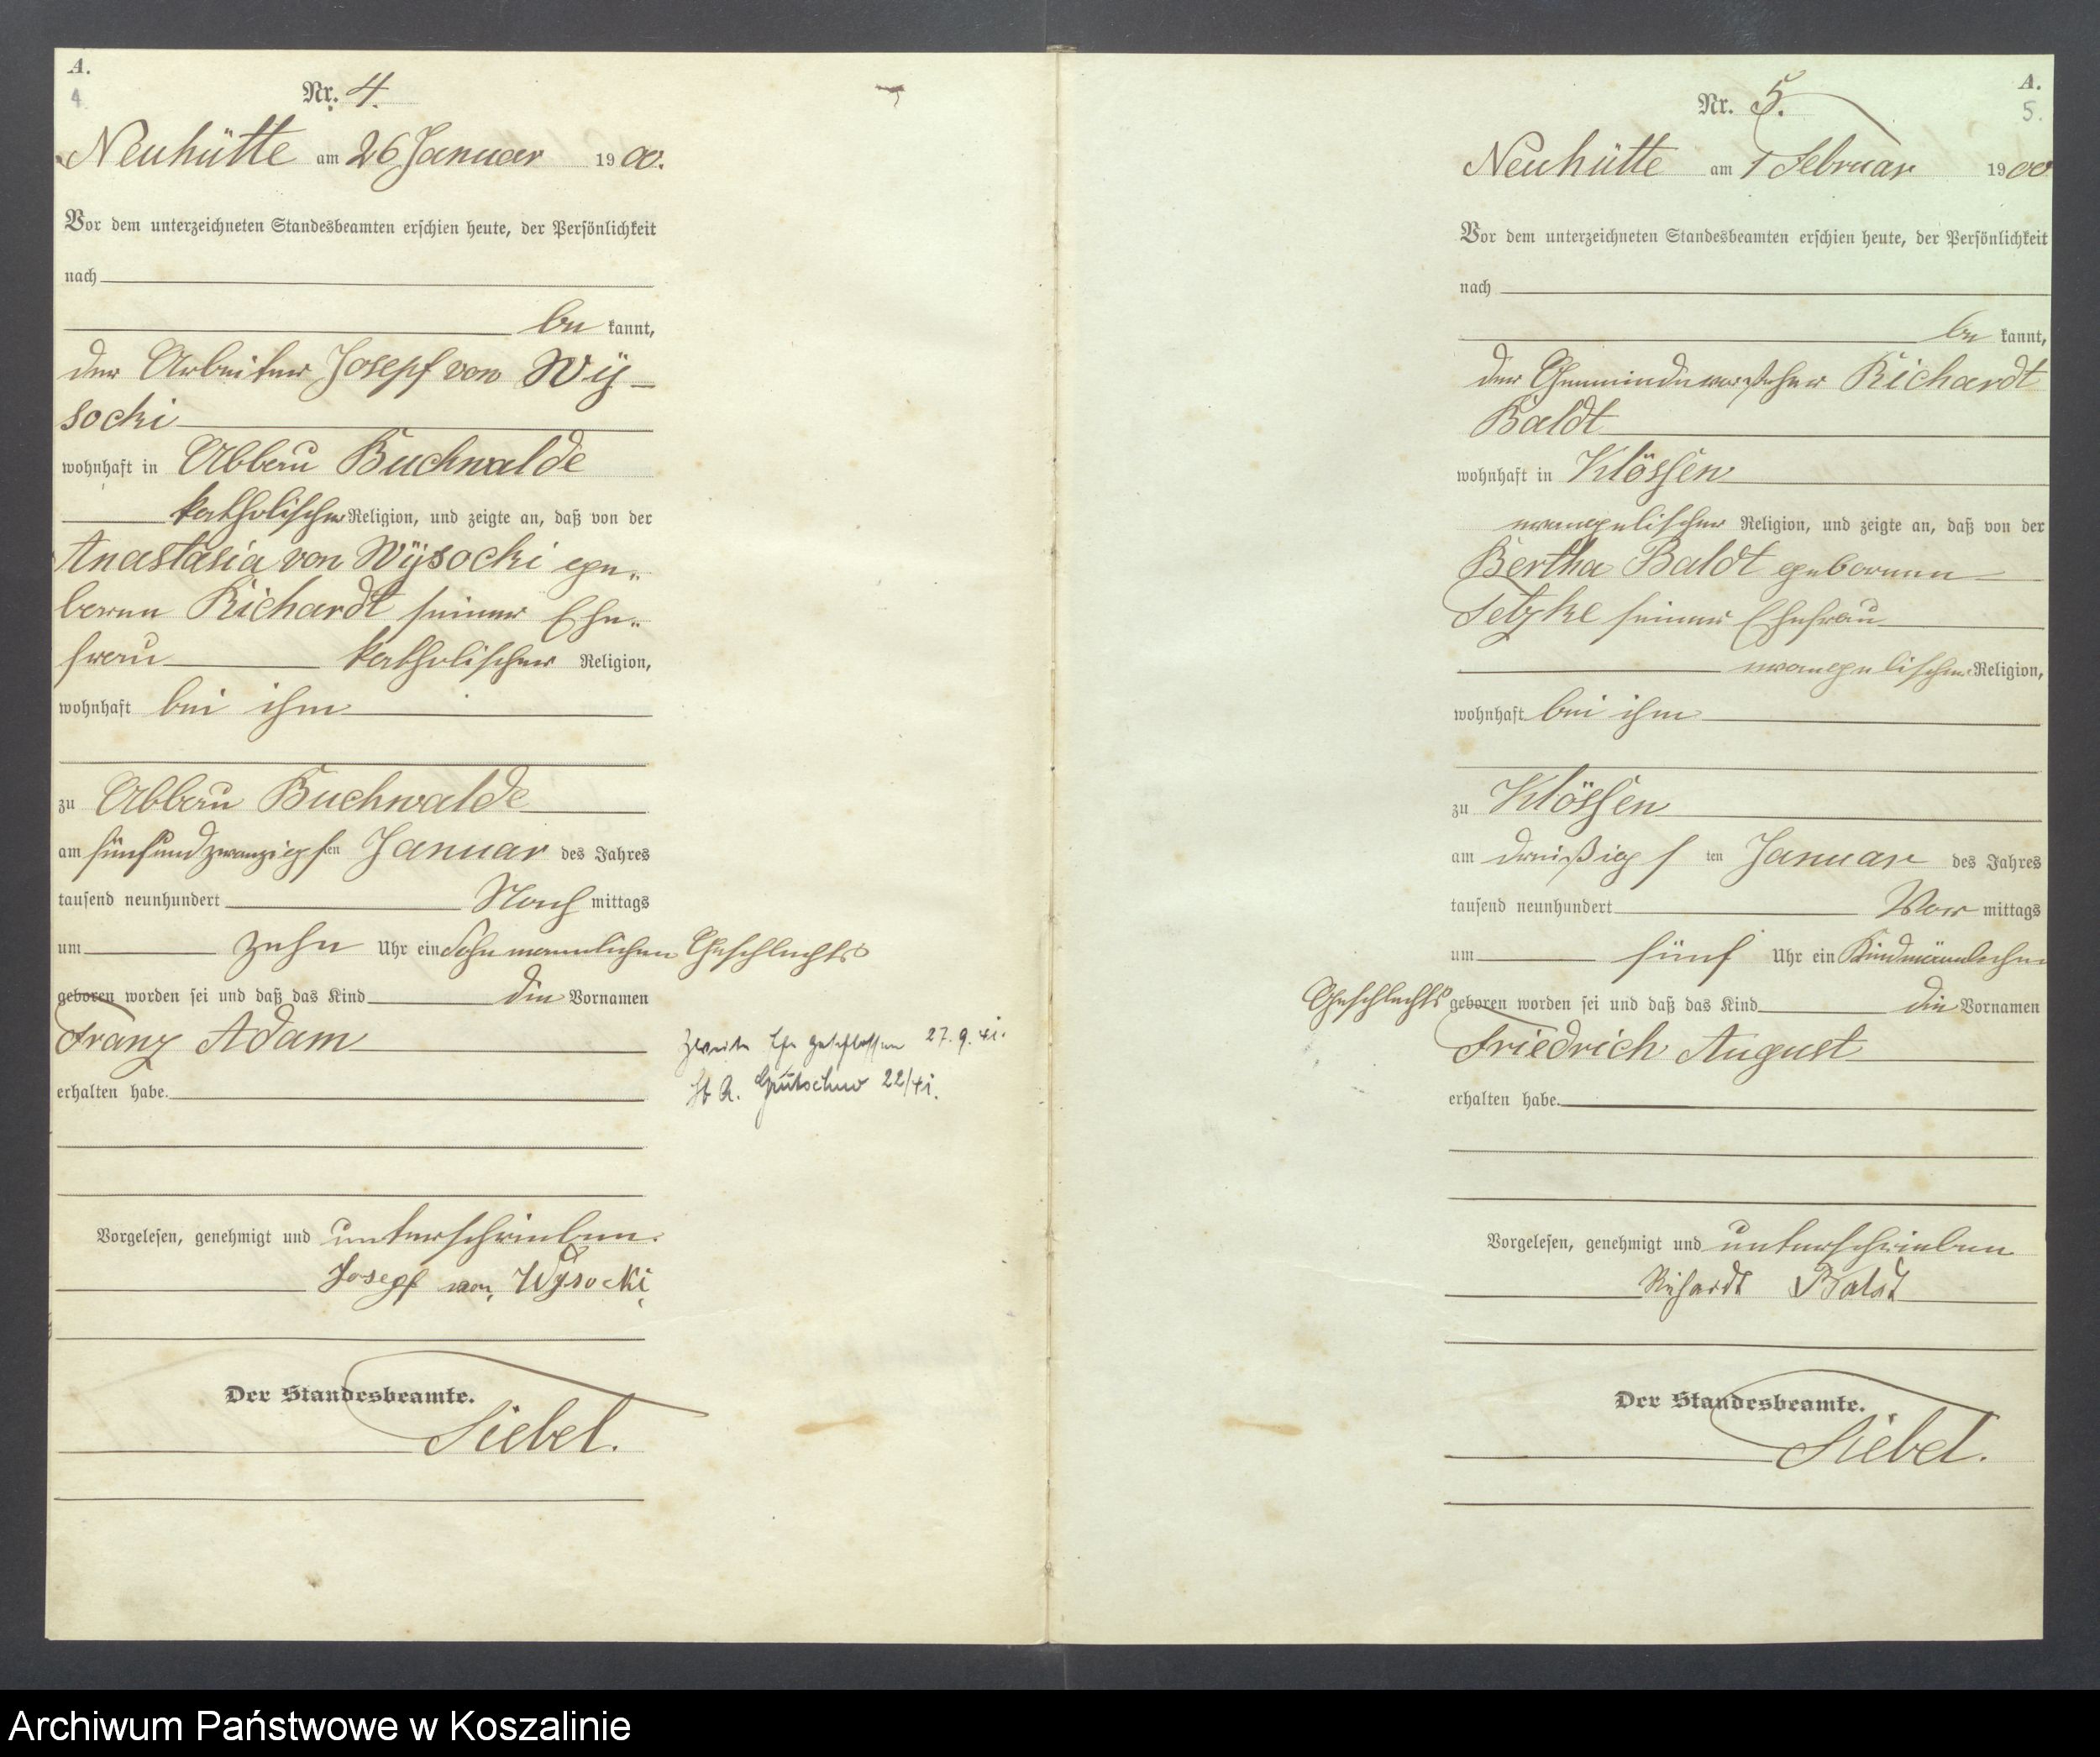 A.
4
Nr. 4.
Neuhütte am 26 Januar 1900.
Vor dem unterzeichneten Standesbeamten erschien heute, der Persönlichkeit
nach
be kannt,
der Arbeiter Joseph von Wÿ-
socki
wohnhaft in Abbau Buchwalde
katholischer Religion, und zeigte an, daß von der
Anastasia von Wÿsocki ge-
borene Richardt seiner Ehe-
frau katholischer Religion,
wohnhaft bei ihm
zu Abbau Buchwalde
am fünfundzwanzigsten Januar des Jahres
tausend neunhundert Nach mittags
um zehn Uhr ein Sohn mannlichen Geschlechts
geboren worden sei und daß das Kind die Vornamen
Franz Adam
erhalten habe.
Zweite Ehe geschlossen 27.9.41.
St A. 22/41.
Vorgelesen, genehmigt und unterschrieben.
Joseph von Wysocki
Der Standesbeamte.
Siebel.
A.
5.
Nr. 5.
Neuhütte am 1 Februar 1900
Vor dem unterzeichneten Standesbeamten erschien heute, der Persönlichkeit
nach
be kannt,
der Gemeindevorsteher Richardt
Baldt
wohnhaft in Klössen
evangelischer Religion, und zeigte an, daß von der
Bertha Baldt geborenen
Tetzke seiner Ehefrau
evangelischer Religion,
wohnhaft bei ihm
zu Klössen
am dreißigs ten Januar des Jahres
tausend neunhundert Vor mittags
um fünf Uhr ein Kind männlichen
Geschlechts geboren worden sei und daß das Kind die Vornamen
Friedrich August
erhalten habe.
Vorgelesen, genehmigt und unterschrieben
Richardt Baldt
Der Standesbeamte.
Siebel.
Archiwum Państwowe w Koszalinie